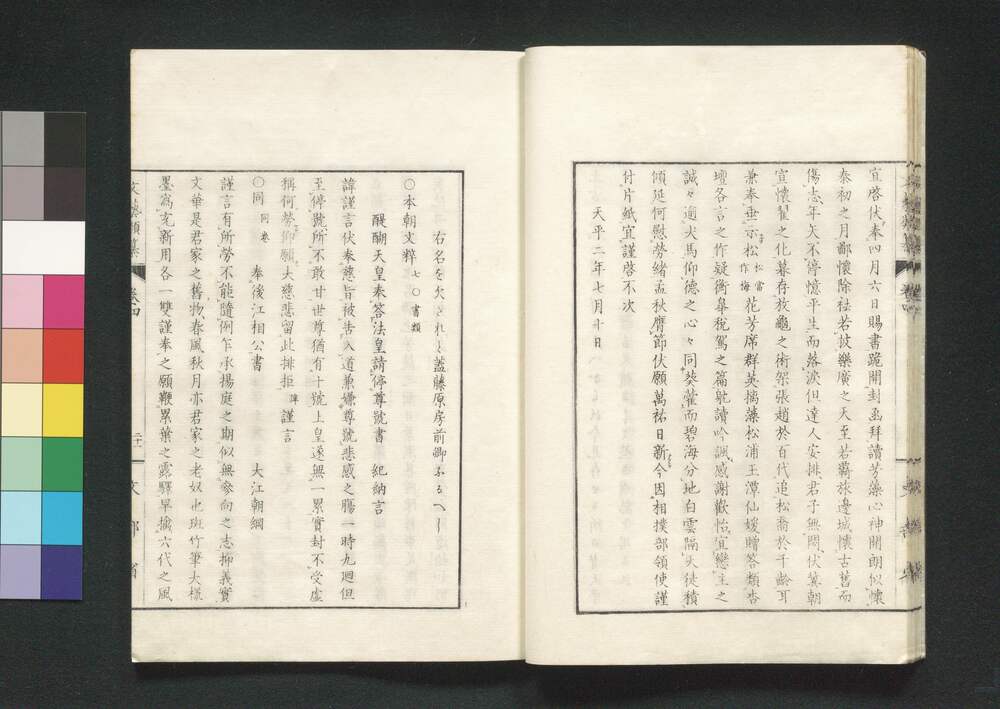 宜啓伏奉四月六日賜書跪開封函拜讀芳藻心神開朗似懷
泰初之月鄙懷除祛若披樂廣之天至若羇旅邊城懷古舊而
傷志年矢不停憶平生而落淚但達人安排君子無悶伏冀朝
宣懷翟之化暮存放龜之術架張趙於百代追松喬於千齡耳
兼奉垂示松松當作梅花芳席群英摛藻松浦玉潭仙媛贈答類杏
壇各言之作疑衡皐稅駕之篇躭讀吟諷感謝歡怡宜戀主之
誠々逾犬馬仰德之心々同葵藿而碧海分地白雲隔天徒積
傾延何慰勞緒孟秋膺節伏願萬祐日新今因相撲部領使謹
付片紙宜謹啓不次
天平二年七月十日
右名を欠きれと蓋藤原房前卿なるへし
○本朝文粹七○書類
醍醐天皇奉答法皇請停尊號書 紀納言
諱謹言伏奉慈旨被告入道兼嫌尊號悲感之膓一時九廻但
至停號所不敢甘世尊猶有十號上皇遂無一累實封不受虛
稱何勞仰願大慈悲留此排拒諱謹言
○同同卷 奉後江相公書 大江朝綱
謹言有所勞不能隨例乍承揚庭之期似無參向之志抑義實
文華是君家之舊物春風秋月亦君家之老奴也斑竹筆大樣
墨寫充新用各一雙謹奉之願鞭累葉之露驛早擒六代之風
文藝類纂 卷四 二十一 文部省